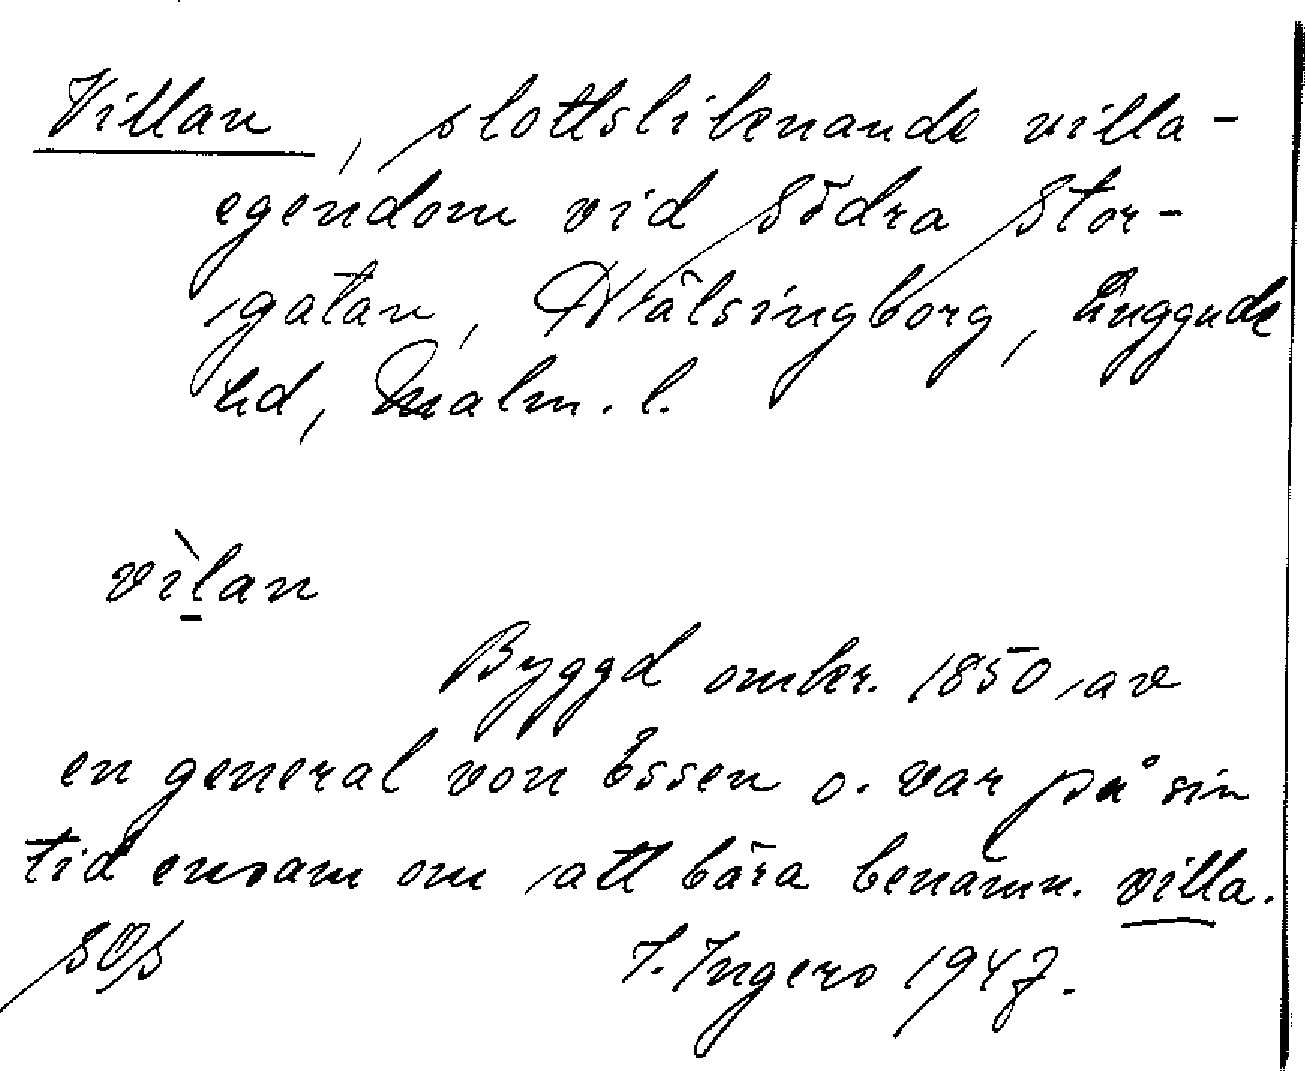 Villan, slottsliknande villa-
egendom vid Södra Stor-
gatan, Hälsingborg, Luggude
hd, Malm. l.
vìlan
Byggd omkr. 1850 av
en general von Essen o. var på sin
tid ensam om att bära benämn. villa.
I. Ingers 1947.